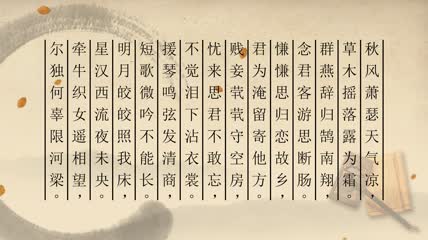 秋风萧瑟天气凉，
草木摇落露为霜。
群燕辞归鹄南翔，
念君客游思断肠。
慊慊思归恋故乡，
君为淹留寄他方。
贱妾茕茕守空房，
忧来思君不敢忘，
不觉泪下沾衣裳。
援琴鸣弦发清商，
短歌微吟不能长。
明月皎皎照我床，
星汉西流夜未央。
牵牛织女遥相望，
尔独何辜限河梁。